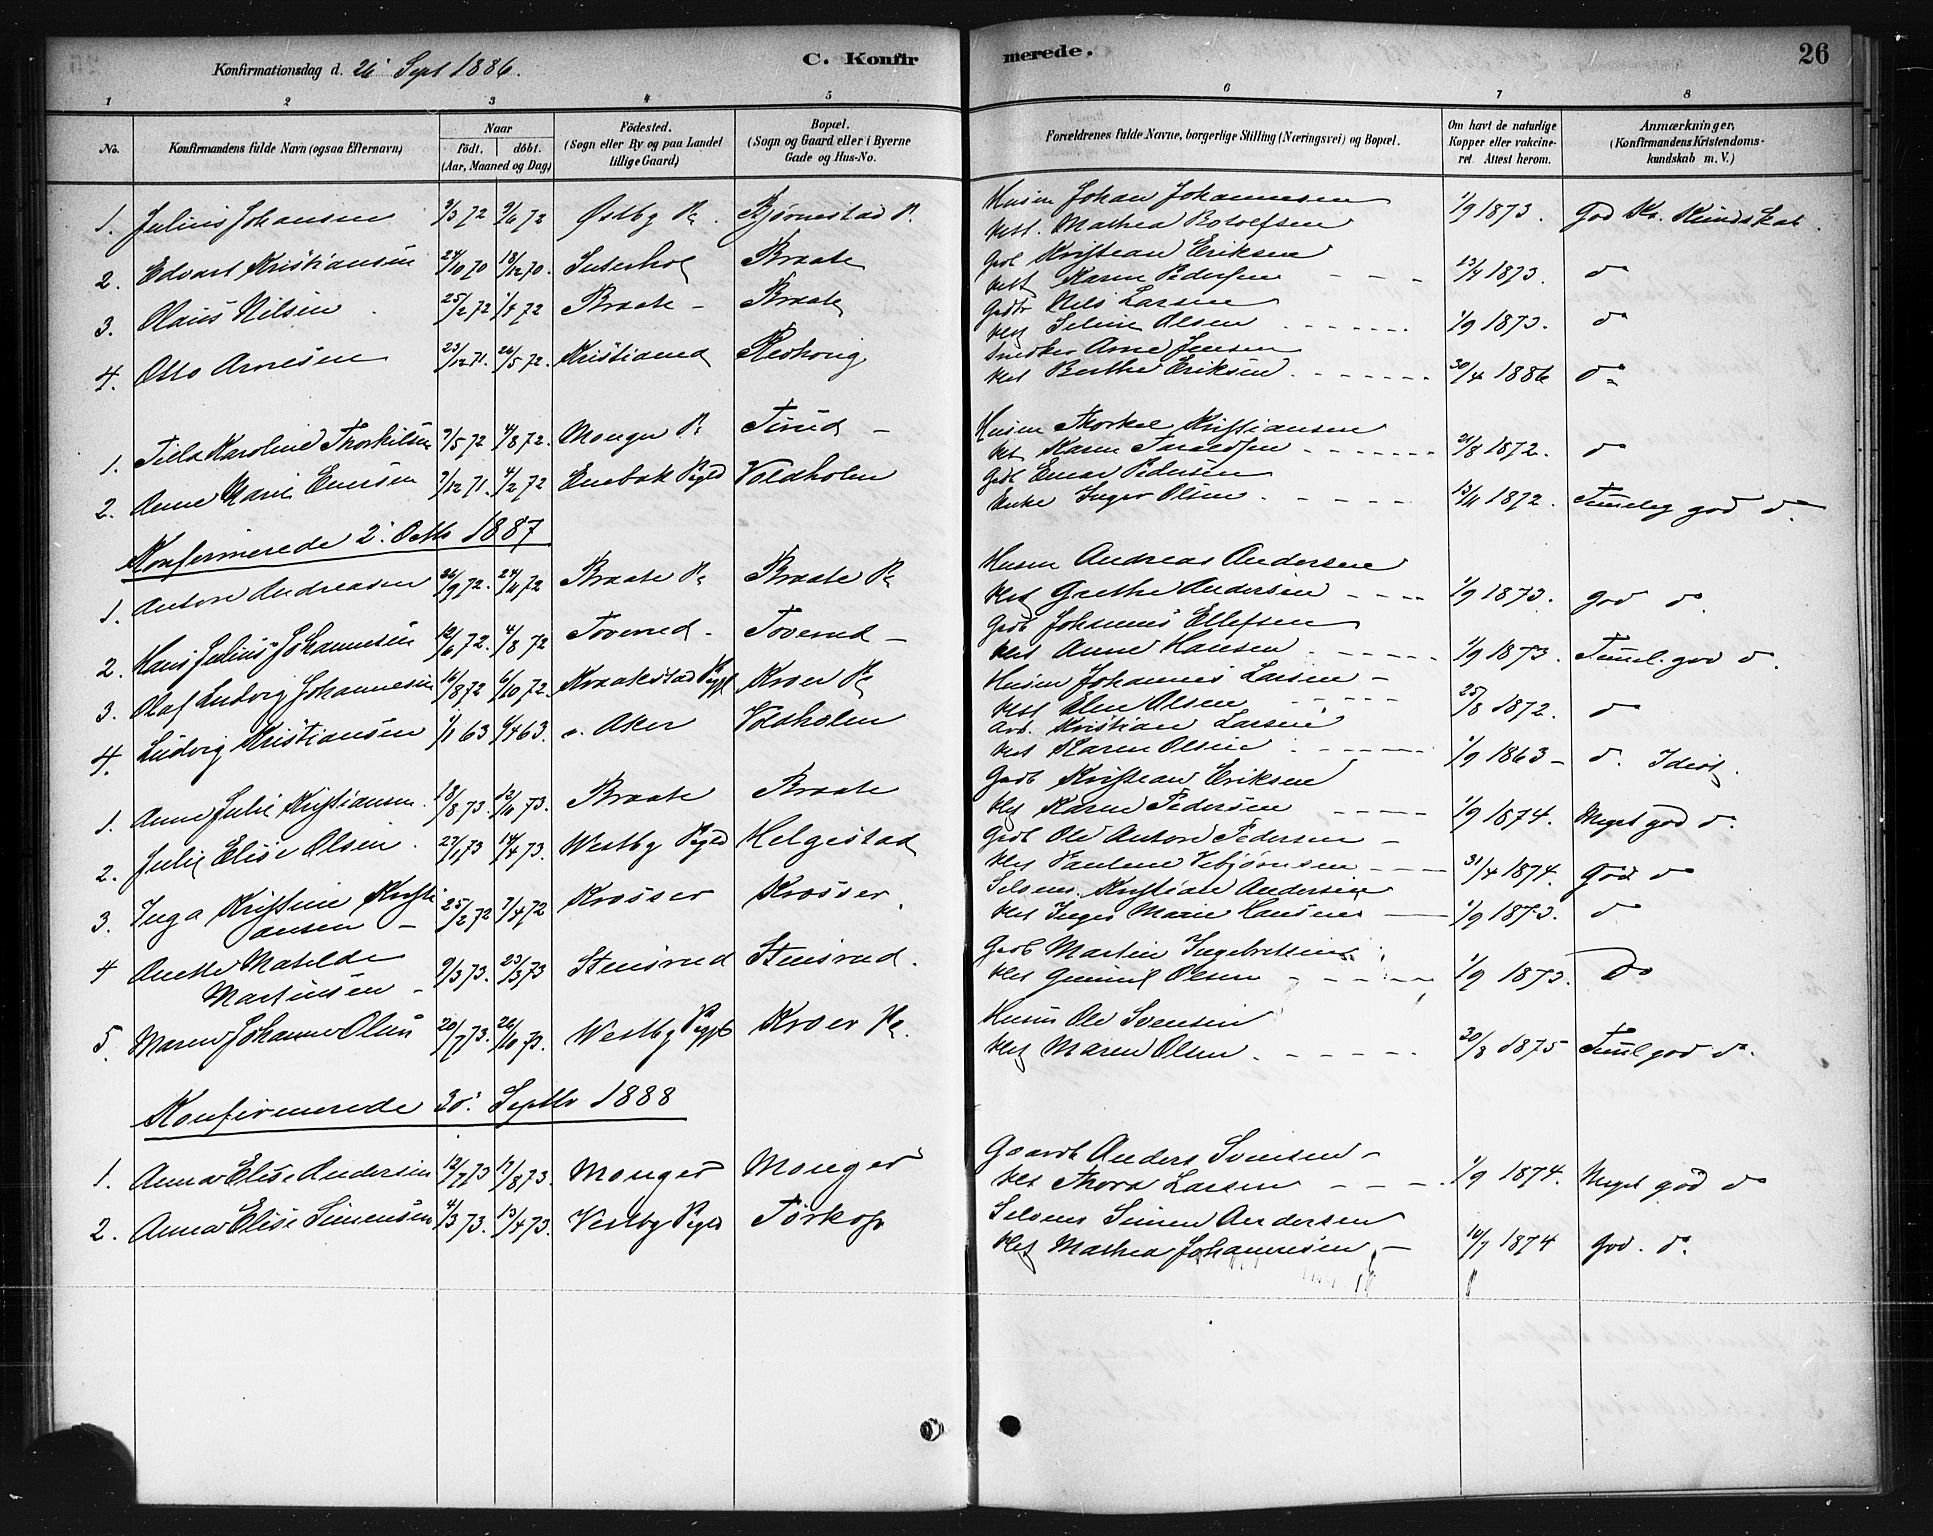 Konfirmationsdag d. 26' Sept 1886.
C. Konfirmerede.
26
1 2 3 4 5 6 7 8
No.
Konfirmandens fulde Navn (ogsaa Efternavn)
Naar
födt. döbt.
(Aar, Maaned og Dag)
Födested.
(Sogn eller By og paa Landet
tillige Gaard)
Bopæl.
(Sogn og Gaard eller i Byerne
Gade og Hus-No.
Forældrenes fulde Navne, borgerlige Stilling (Næringsvei) og Bopæl.
Om havt de naturlige
Kopper eller vakcine-
ret. Attest herom.
Anmærkninger,
(Konfirmandens Kristendoms-
kundskab m. V.)
1. Julius Johansen 9/3 72 9/6 72 Østby Bjørnestad Husm Johan Johannesen
Mathea Botolfsen 1/9 1873. God Kr. Kundskab.
2. Edvart Kristiansen 24/10 70 18/12 70. Braate Kristian Eriksen
Karen Pedersen 13/4 1873. do
3. Olaus Nilsen 25/2 72 1/4 72 Braate - Braate Nils Larsen
Olsen 1/9 1873. do
4. Otto Arnesen 23/12 71. 26/5 72. Arne Jensen
Berthe Eriksen 30/4 1886 do
1. Karoline Thorkilsen 7/5 72 4/8 72. Monger Husm Thorkel Kristiansen
Karen 21/8 1872. do
2. Anne Marie Enersen 7/12 71. 4/2 72 Enebak Pgld Voldholen Ener Pedersen
Enke Inger Olsen 13/11 1872. Temelig god do.
Konfirmerede 2' Octb 1887
1. Anton Andreasen 26/9 72. 24/11 72 Braate Braate Husm Andreas Andersen
Grethe Andersen 1/9 1873. god do.
2. Hans Julius Johannesen 12/6 72. 4/8 72 Toverud - Toverud - Johannes Ellefsen
Anne Hansen 1/9 1873. Teml. god do.
3. Olaf Ludvig Johannesen 16/8 72 6/10 72. Kraakstad Kroer Husm Johannes Larsen -
Olsen 25/8 1872. do
4. Ludvig Kristiansen 1/1 63 6/4 63. Aker Voldholen Arb. Kristian Larsen
Karen Olsen 1/9 1863 - do. Idiot.
1. Anne Julie Kristiansen. 18/8 73. 12/10 73. Braate Braate Kristian Eriksen
Karen Pedersen 1/9 1874. Meget god do.
2. Julie Elise Olsen. 27/1 73 14/4 73. Westby Pgld Helgestad Ole Anton Pedersen -
Pauline 31/4 1874. God do
3. Inga Kristine Kristi
ansen - 25/2 72 7/4 72 Krosser Krosser. Selveier Kristian Andersen
Inger Marie Hansen 1/9 1873. do
4 Anette Matilde
Martinsen - 9/3 73. 23/3 73 Stensrud Stensrud. Martin Ingebretsen
Olsen 1/9 1873. Do
5. Maren Johanne Olsen 20/7 73. 26/10 73. Westby Kroer Husm Ole Svensen
Maren Olsen 30/8 1875 Teml god do.
Konfirmerede 30' Septbr 1888
1. Anna Elise Andersen 12/7 73 17/8 73. Monger Monger Gaardb Anders Svensen -
Thora Larsen 1/9 1874. Meget god do
2. Anna Elise Simensen 4/3 73. 13/4 73. Vestby Pgld Torkop Selveier Simen Andersen
Mathea Johannesen - 14/7 1874 God. do.